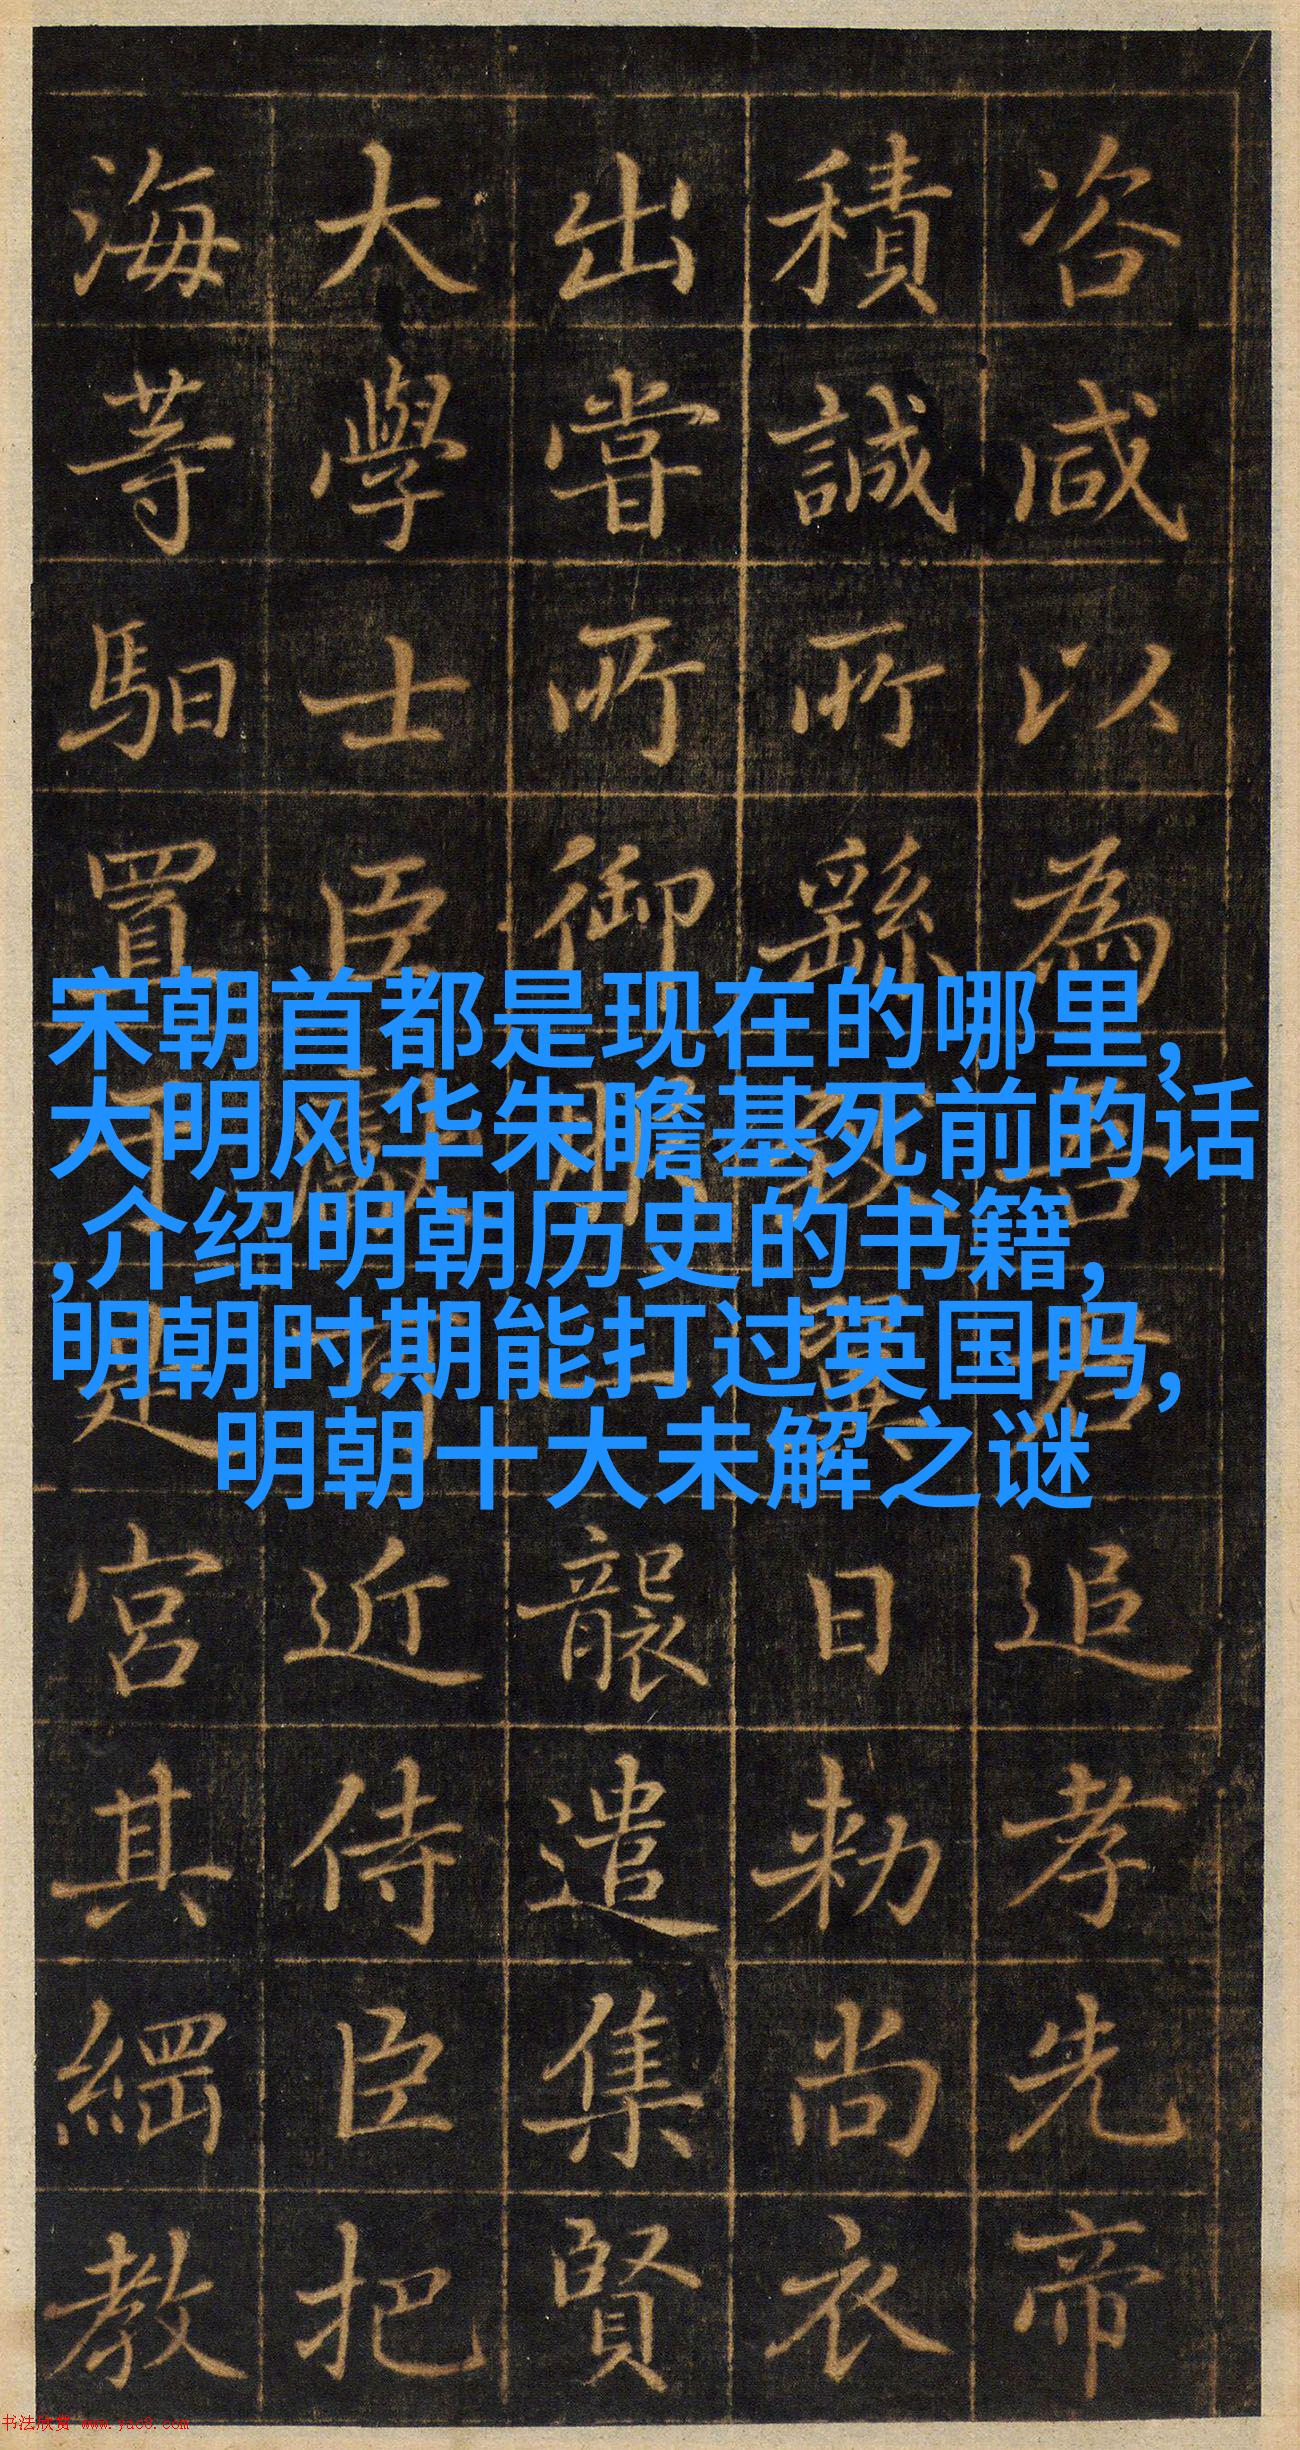 咨咸以為吾君追孝先帝
積誠所繇致異日勑尚衣
出嘗所御服一襲遣集賢
大學士臣近侍臣把
海等馹置宮其綱教
宋朝首都是现在的哪里,
大明风华朱瞻基死前的话
,介绍明朝历史的书籍,
明朝时期能打过英国吗,
明朝十大未解之谜
书法欣赏 www.yac8.com